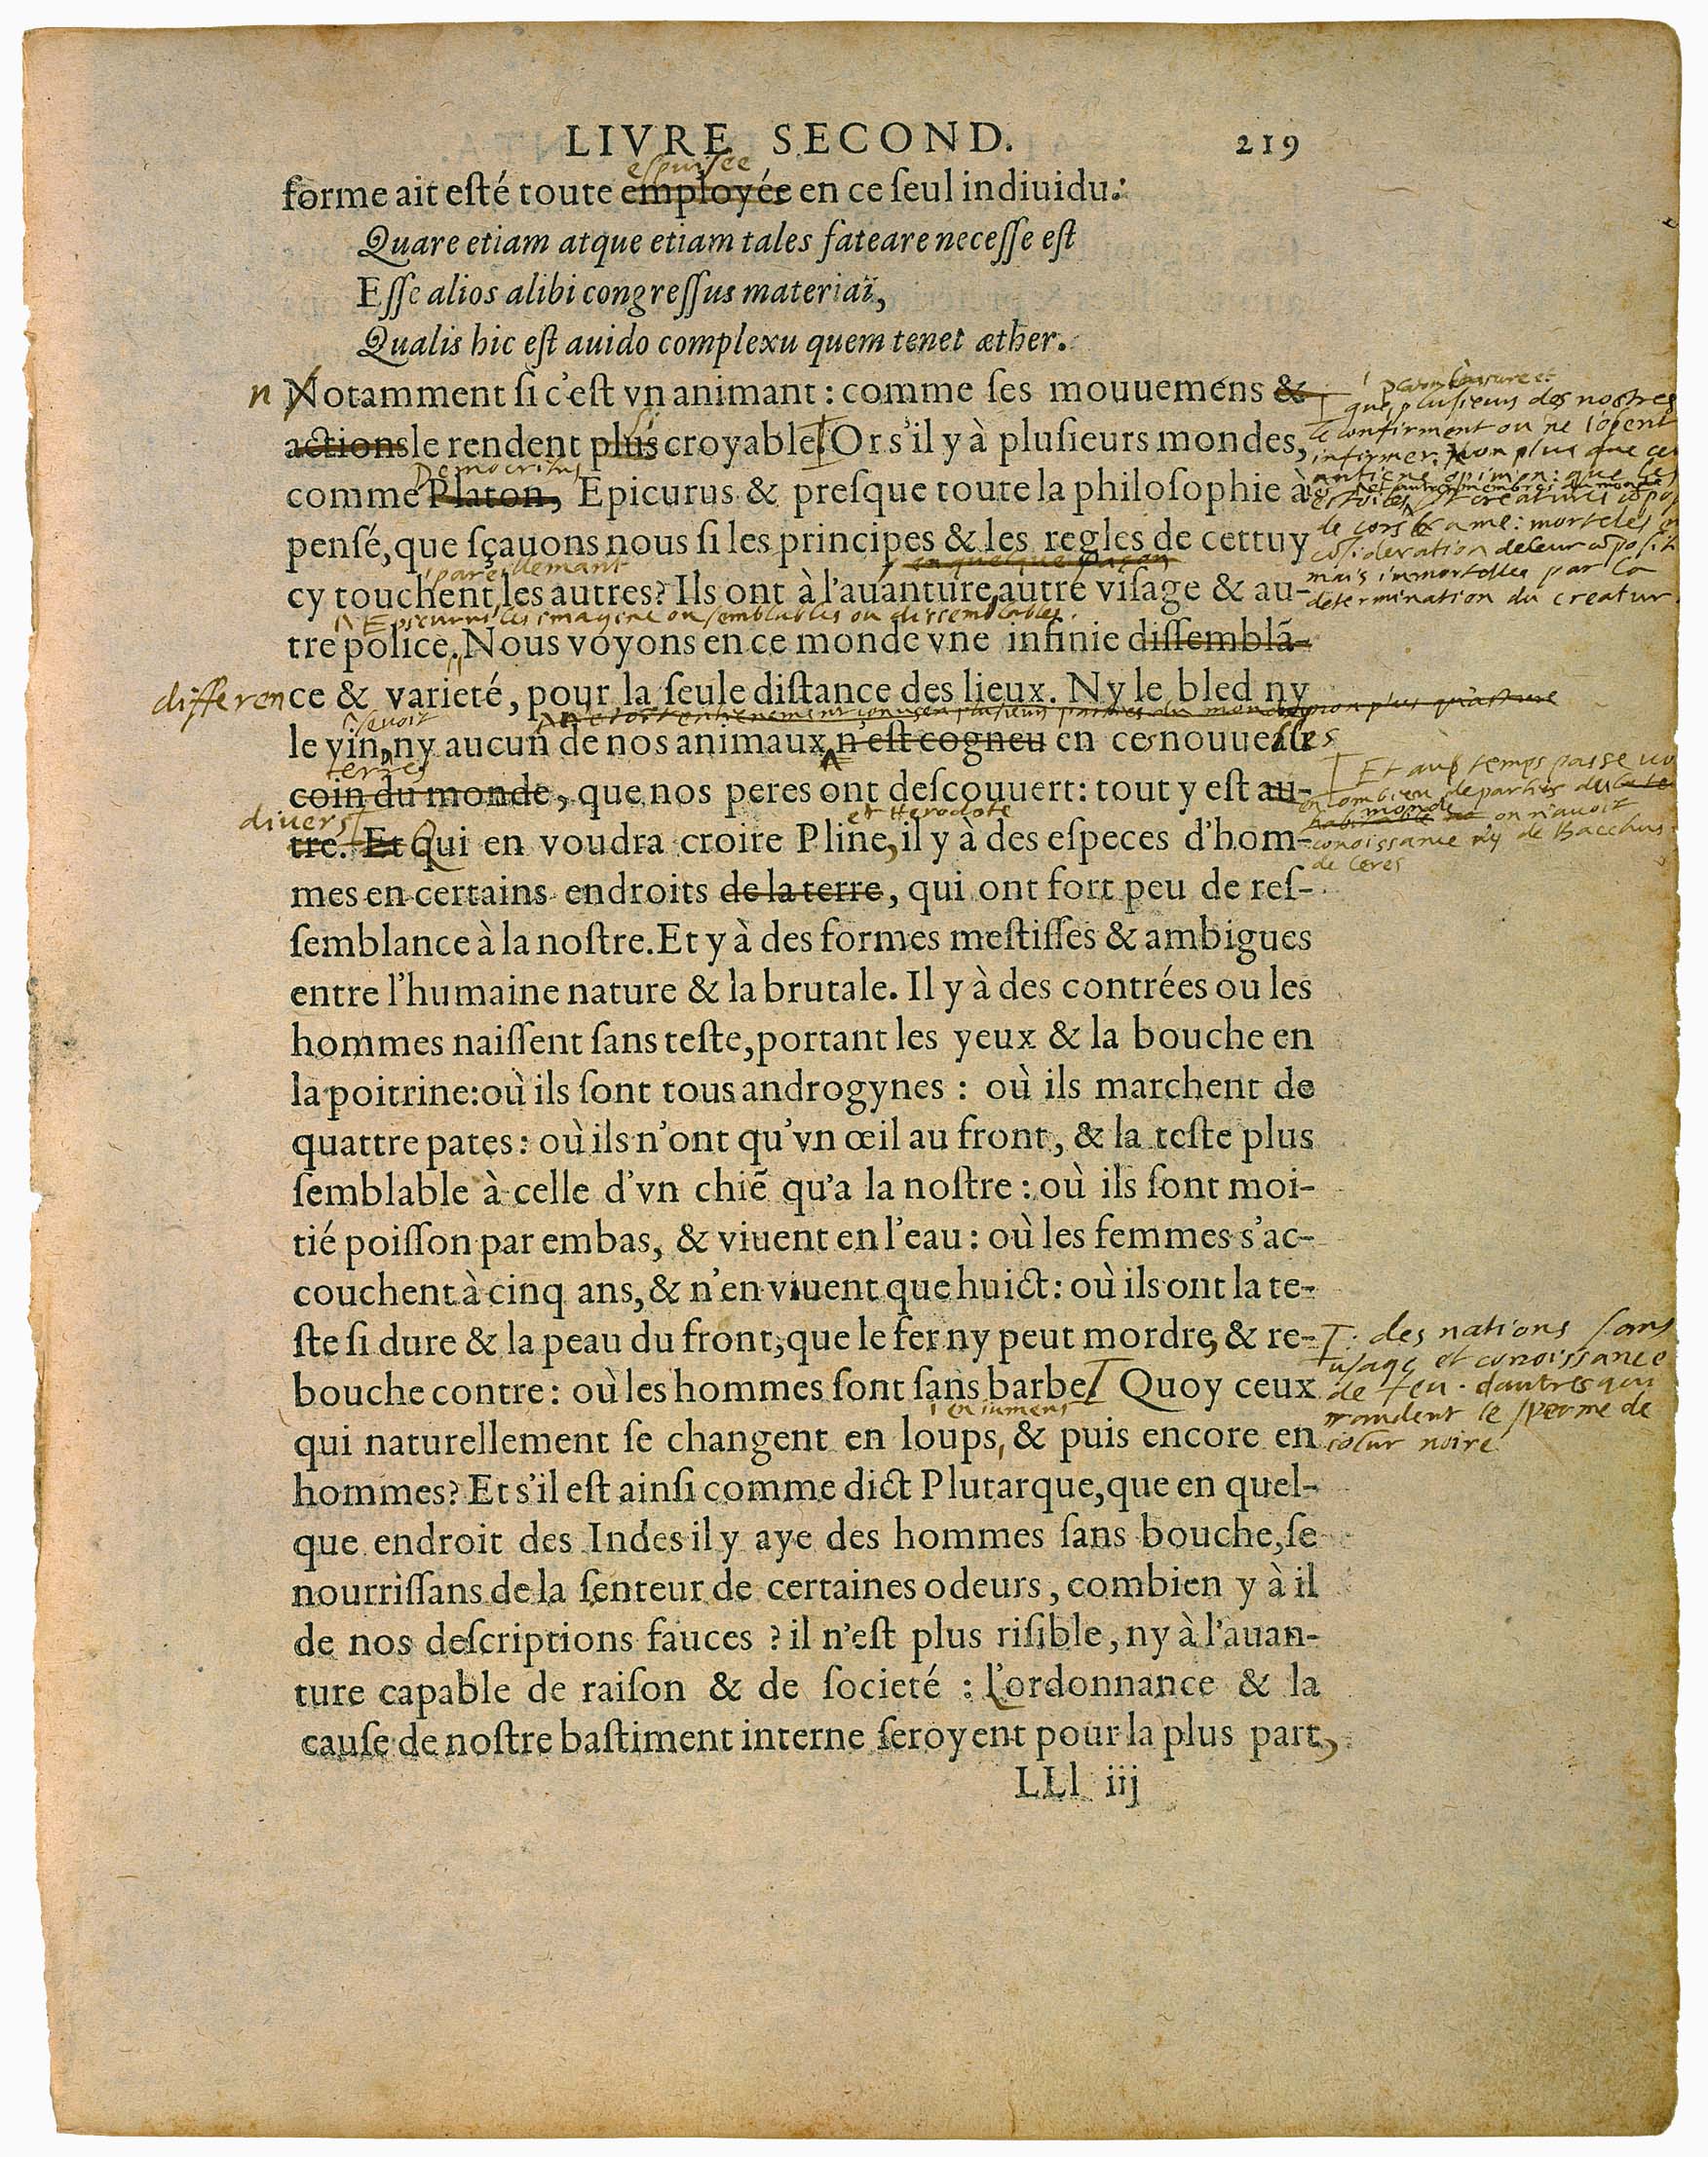 LIVRE SECOND. 219
eſpuisee
forme ait eſté toute employée en ce ſeul indiuidu:
Quare etiam atque etiam tales fateare neceſſe eſt
Eſſe alios alibi congreſſus materiaï,
Qualis hic eſt auido complexu quem tenet æther.
n Notamment ſi c'eſt vn animant : comme ſes mouuemẽs &
actions le rendent plus croyable. Or s'il y à pluſieurs mondes,
Democritus
comme Platon, Epicurus & preſque toute la philoſophie à
penſé, que ſçauons nous ſi les principes & les regles de cettuy
pareillemant en quelque façon
cy touchent les autres? Ils ont à l'auanture autre viſage & au-
Epicurus les imagine ou semblables ou dissemblables.
tre police. Nous voyons en ce monde vne infinie diſſemblã-
differen ce & varieté, pour la ſeule diſtance des lieux. Ny le bled ny
le vin, ny aucun de nos animaux n'eſt cogneu en ces nouuelles
terres
coin du monde, que nos peres ont deſcouuert: tout y eſt au-
divers et Herodote
tre. Et Qui en voudra croire Pline, il y à des eſpeces d'hom-
mes en certains endroits de la terre, qui ont fort peu de reſ-
ſemblance à la noſtre. Et y à des formes meſtiſſes & ambigues
entre l'humaine nature & la brutale. Il y à des contrées ou les
hommes naiſſent ſans teſte, portant les yeux & la bouche en
la poitrine: où ils ſont tous androgynes : où ils marchent de
quattre pates : où ils n'ont qu'vn œil au front, & la teſte plus
ſemblable à celle d'vn chiẽ qu'a la noſtre : où ils ſont moi-
tié poiſſon par embas, & viuent en l'eau : où les femmes s'ac-
couchent à cinq ans, & n'en viuent que huict : où ils ont la te-
ſte ſi dure & la peau du front, que le fer ny peut mordre, & re-
bouche contre : où les hommes ſont ſans barbe Quoy ceux
en iumens
qui naturellement ſe changent en loups, & puis encore en
hommes? Et s'il eſt ainſi comme dict Plutarque, que en quel-
que endroit des Indes il y aye des hommes ſans bouche, ſe
nourriſſans de la ſenteur de certaines odeurs, combien y à il
de nos deſcriptions fauces ? il n'eſt plus riſible, ny à l'auan-
ture capable de raiſon & de ſocieté : L'ordonnance & la
cauſe de noſtre baſtiment interne ſeroyent pour la plus part,
LLl iij
que plusieurs des nostres
le confirment ou ne l'osent
infirmer. Non plus que cet
antiene opinion: que
de cors & ame: morteles
consideration de leur
mais immortelles par la
determination du creatur
Et aus temps passe
combien de parties du
monde on n'avoit
conoissance ny de Bacchus
de Ceres
des nations sans
usage et conoissance
de feu. dautres qui
randent le sperme de
colur noire